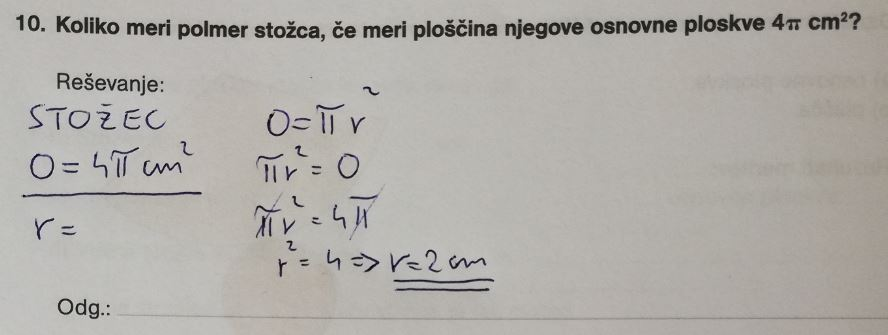 10. Koliko meri polmer stožca, če meri ploščina njegove osnovne ploskve 4π cm²?
Reševanje:
STOŽEC
O = 4π cm²
r =
O = π r²
π r² = O
π r² = 4π
r² = 4 => r = 2 cm
Odg.: